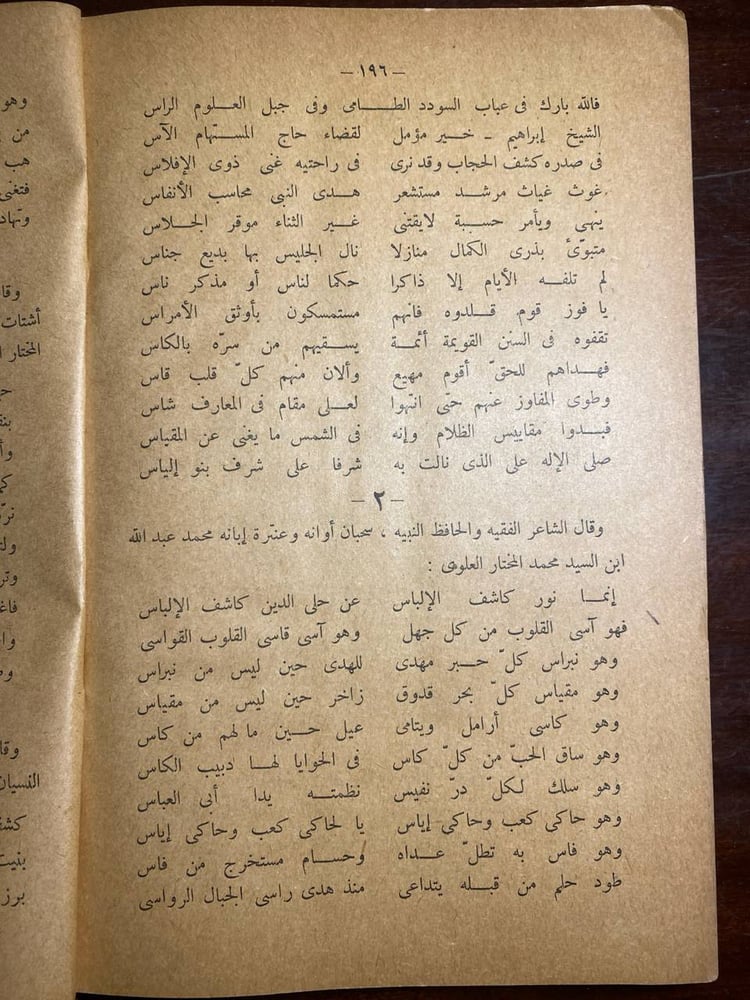 — ١٩٦ —
فالله بارك فى عباب السودد الطــامى وفى جبل العــلوم الراس
الشيخ إبراهيم ـ خــير مؤمل لقضاء حاج المستهام الآس
فى صدره كشف الحجاب وقد نرى فى راحتيه غنى ذوى الإفلاس
غوث غياث مرشد مستشعر هدى النبي محاسب الأنفاس
ينهى ويأمر حسبة لايقتنى غير الثناء موقر الجلاس
متبوّئ بذرى الكمال منازلا نال الجليس بها بديع جناس
لم تلفه الأيام إلا ذاكرا حكما لناس أو مذكر ناس
يا فوز قوم قلدوه فانهم مستمسكون بأوثق الأمراس
تقفوه فى السنن القويمة أئمة يسقيهم من سرّه بالكاس
فهداهم للحقّ أقوم مهيع وألان منهم كلّ قلب قاس
وطوى المفاوز عنهم حتى انتهوا لعلى مقام فى المعارف شاس
فبدوا مقاييس الظلام وإنه فى الشمس ما يغنى عن المقياس
صلى الإله على الذى نالت به شرفا على شرف بنو إلياس
— ٢ —
وقال الشاعر الفقيه والحافظ النبيه ، سحبان أوانه وعنترة إبانه محمد عبد الله
ابن السيد محمد المختار العلوى :
إنمـا نور كاشف الإلباس عن حلى الدين كاشف الإلباس
فهو آسى القلوب من كل جهل وهو آسى قاسى القلوب القواسى
وهو نبراس كلّ حبر مهدى للهدى حين ليس من نبراس
وهو مقياس كلّ بحر قدوق زاخر حين ليس من مقياس
وهو كاسى أرامل ويتامى عيل حين ما لهم من كاس
وهو ساق الحبّ من كلّ كاس فى الحوايا لها دبيب الكاس
وهو سلك لكلّ درّ نفيس نظمته يدا أبى العباس
وهو حاكى كعب وحاكى إياس يا لحاكى كعب وحاكى إياس
وهو فاس به تطلّ عداه وحسام مستخرج من فاس
طود حلم من قبله يتداعى منذ هدى راسى الجبال الرواسى
وهو
من
هب
فتغنى
وتهاد
وقا
أشتات
المختار
النسيان
كشف
بنيت
برز